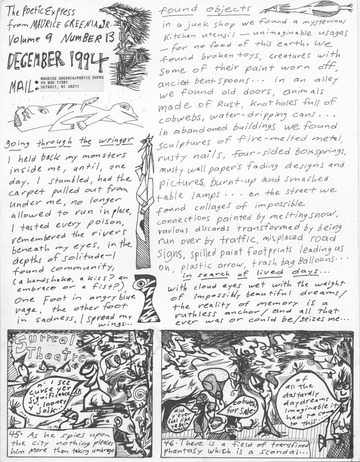 The Poetic Express
from MAURICE GREENIA, JR.
Volume 9 Number 13
DECEMBER 1994
MAIL:
MAURICE GREENIA/POETIC EXPRE
PO BOX 11301
DETROIT, MI 48211
going through the wringer
I held back my monsters
inside me, until, one
day. I stumbled, had the
carpet pulled out from
under me, no longer
allowed to run in place,
I tasted every poison,
remembered the rivers
beneath my eyes, in the
depths of solitude—I
found community,
(a handshake, a kiss? an
embrace or a fist?)
One foot in angry blue
rage, the other foot
in sadness, I spread my
wings...
found objects
in a junk shop we found a mysterious
kitchen utensil — unimaginable usages
- for no food of this earth. We
found broken toys, creatures with
some of their paint worn off
ancient bent spoons... in an alley
we found old doors, animals
made of Rust, knotholes full of
cobwebs, water-dripping cans...
in abandoned buildings we found
sculptures of fire-melted metal,
rusty nails, four-sided boxsprings,
musty wall paper's fading designs and
pictures, burnt-up and smashed
table lamps... on the street we
found collages of impossible
connections painted by melting snow,
various discards transformed by being
run over by traffic, misplaced road
signs, spilled paint footprints leading us
on, plastic arrow, trash bag Balloons...
in search of lived days...
with cloud eyes wet with the weight
of impossibly beautiful dreams/
the reality of memory is a
ruthless anchor/ and all that
ever was or could be/seizes me...
Surreal
Theatre
I see
cute yet
significance
loosely
45. As he spies upon
the city nothing pleases
him more than taking umbrage
for sale
of
all the
dastardly
daydreams
imaginable it
had to come
to this
46. Here is a field of transfixed
phantasy which is a scandal...